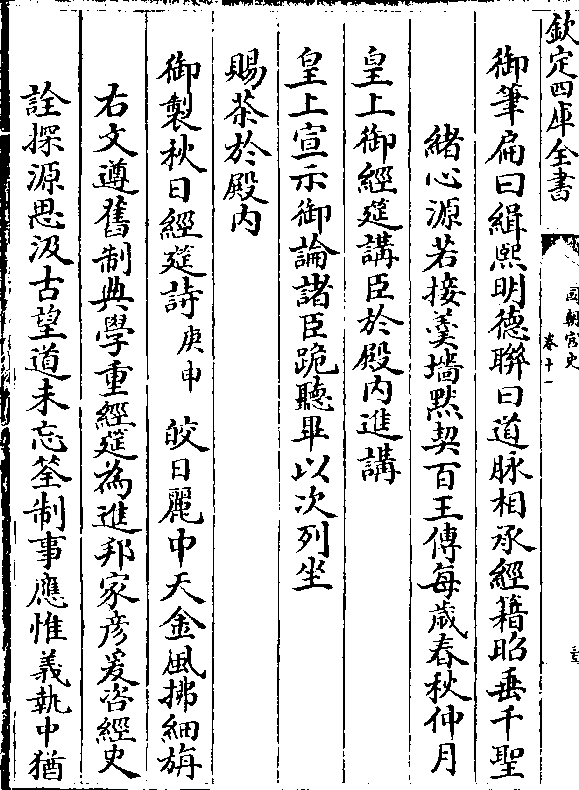 欽定四庫全書
國朝宮史
卷十一
御筆扁曰緝熙明德聯曰道脉相承經籍昭垂千聖
緒心源若接羮墻黙契百王傳每歳春秋仲月
皇上御經筵講臣於殿内進講
皇上宣示御論諸臣跪聽畢以次列坐
賜茶於殿内
御製秋日經筵詩庚申 皎日麗中天金風拂細旃
右文遵舊制典學重經筵為進邦家彦爰咨經史
詮探源思汲古望道未忘筌制事應惟義執中猶